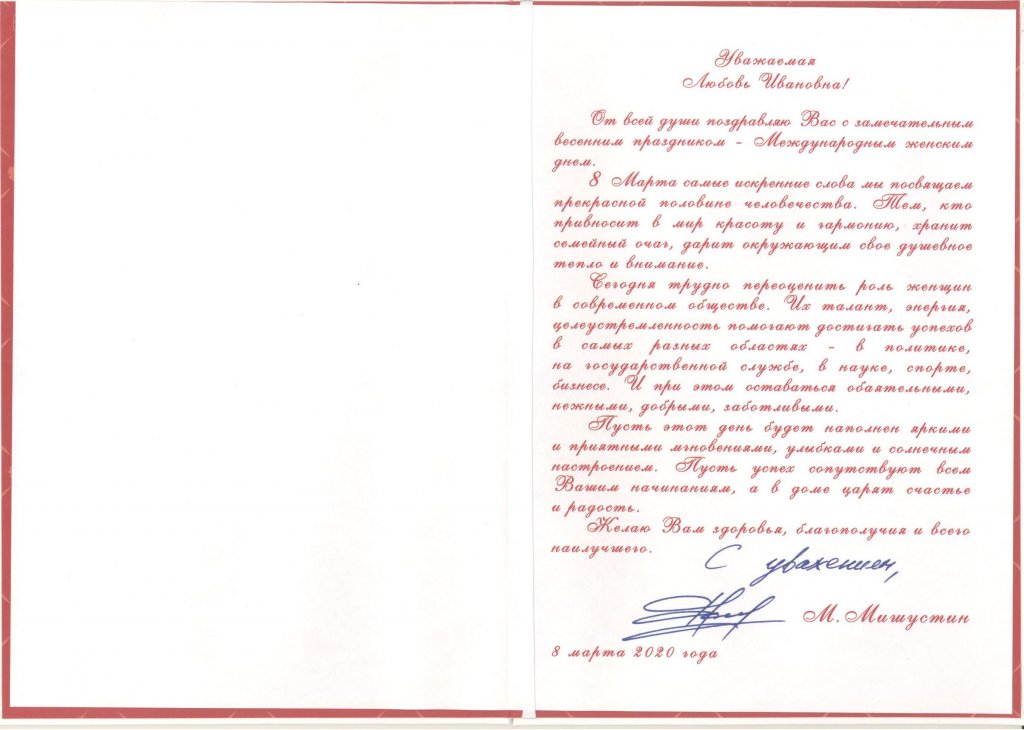 Уважаемая
Любовь Ивановна!
От всей души поздравляю Вас с замечательным
весенним праздником - Международным женским
днем.
8 Марта самые искренние слова мы посвящаем
прекрасной половине человечества. Тем, кто
привносит в мир красоту и гармонию, хранит
семейный очаг, дарит окружающим свое душевное
тепло и внимание.
Сегодня трудно переоценить роль женщин
в современном обществе. Их талант, энергия,
целеустремленность помогают достигать успехов
в самых разных областях - в политике,
на государственной службе, в науке, спорте,
бизнесе. И при этом оставаться обаятельными,
нежными, добрыми, заботливыми.
Пусть этот день будет наполнен яркими
и приятными мгновениями, улыбками и солнечным
настроением. Пусть успех сопутствуют всем
Вашим начинаниям, а в доме царят счастье
и радость.
Желаю Вам здоровья, благополучия и всего
наилучшего.
С уважением,
М. Мишустин
8 марта 2020 года